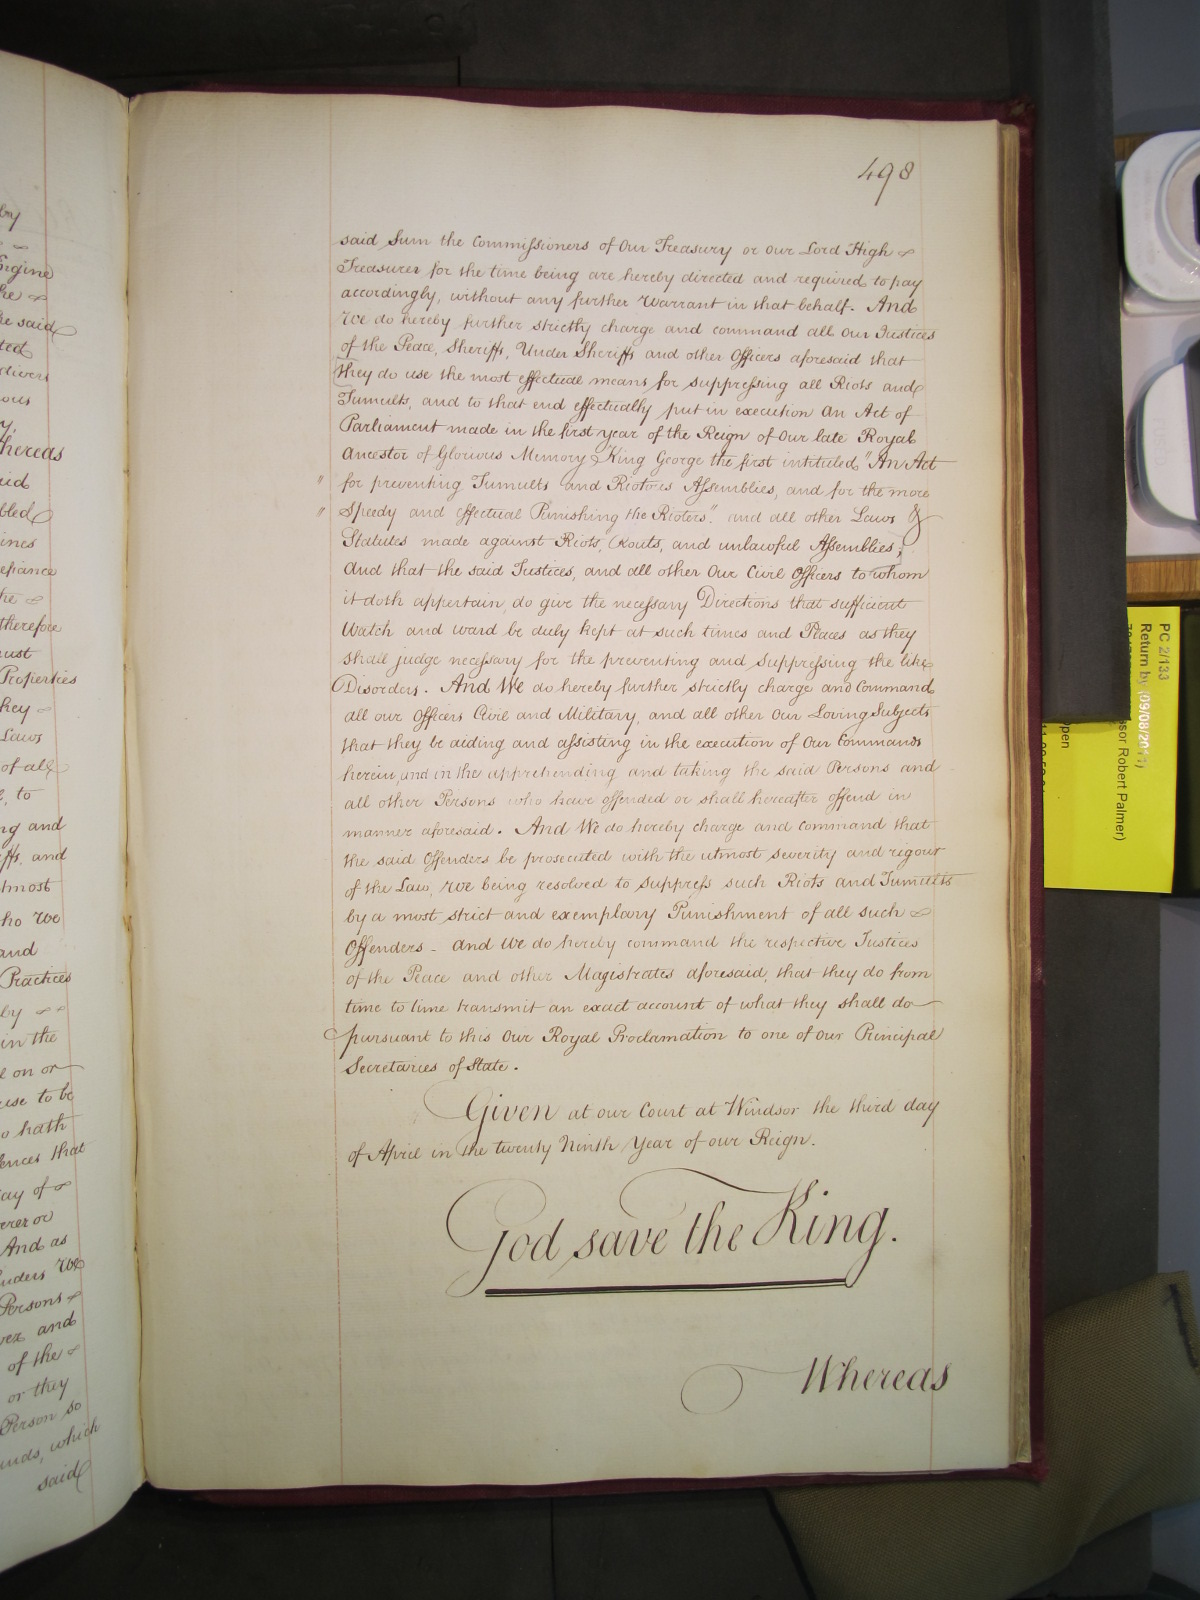 by
Engine
he
he said
ted
ous
y,
hereas
aid
bled
ines
efiance
he
therefore
ust
Properties
hey
Laws
of all
, to
ng and
ffs, and
tmost
ho We
and
Practices
by
in the
e on or
use to be
o hath
ences that
ay of
erer or
And as
nders We
Persons
vex and
of the
or they
Person so
unds, which
said
498
said Sum the Commissioners of Our Treasury or our Lord High
Treasurer for the time being are hereby directed and required to pay
accordingly, without any further Warrant in that behalf. And
We do hereby further strictly charge and command all our Justices
of the Peace, Sheriffs, Under Sheriffs and other Officers aforesaid that
they do use the most effectual means for suppressing all Riots and
Tumults, and to that end effectually put in execution an Act of
Parliament made in the first year of the Reign of Our late Royal
Ancestor of Glorious Memory King George the first intituled "An Act
" for preventing Tumults and Riotous Assemblies, and for the more
" Speedy and effectual Punishing the Rioters". and all other Laws &
Statutes made against Riots, Routs, and unlawful Assemblies;
And that the said Justices, and all other Our Civil Officers to whom
it doth appertain, do give the necessary Directions that sufficient
Watch and ward be duly kept at such times and Places as they
shall judge necessary for the preventing and Suppressing the like
Disorders. And We do hereby further strictly charge and Command
all our Officers Civil and Military, and all other Our Loving Subjects
that they be aiding and assisting in the execution of Our Commands
herein, and in the apprehending and taking the said Persons and
all other Persons who have offended or shall hereafter offend in
manner aforesaid. And We do hereby charge and command that
the said Offenders be prosecuted with the utmost severity and rigour
of the Law, We being resolved to Suppress such Riots and Tumults
by a most strict and exemplary Punishment of all such
Offenders - and We do hereby command the respective Justices
of the Peace and other Magistrates aforesaid, that they do from
time to time transmit an exact account of what they shall do
pursuant to this Our Royal Proclamation to one of our Principal
Secretaries of State.
Given at our Court at Windsor the third day
of April in the twenty Ninth Year of our Reign.
God save the King.
Whereas
PC 2/133
Return by (09/08/2011)
ssor Robert Palmer)
pen